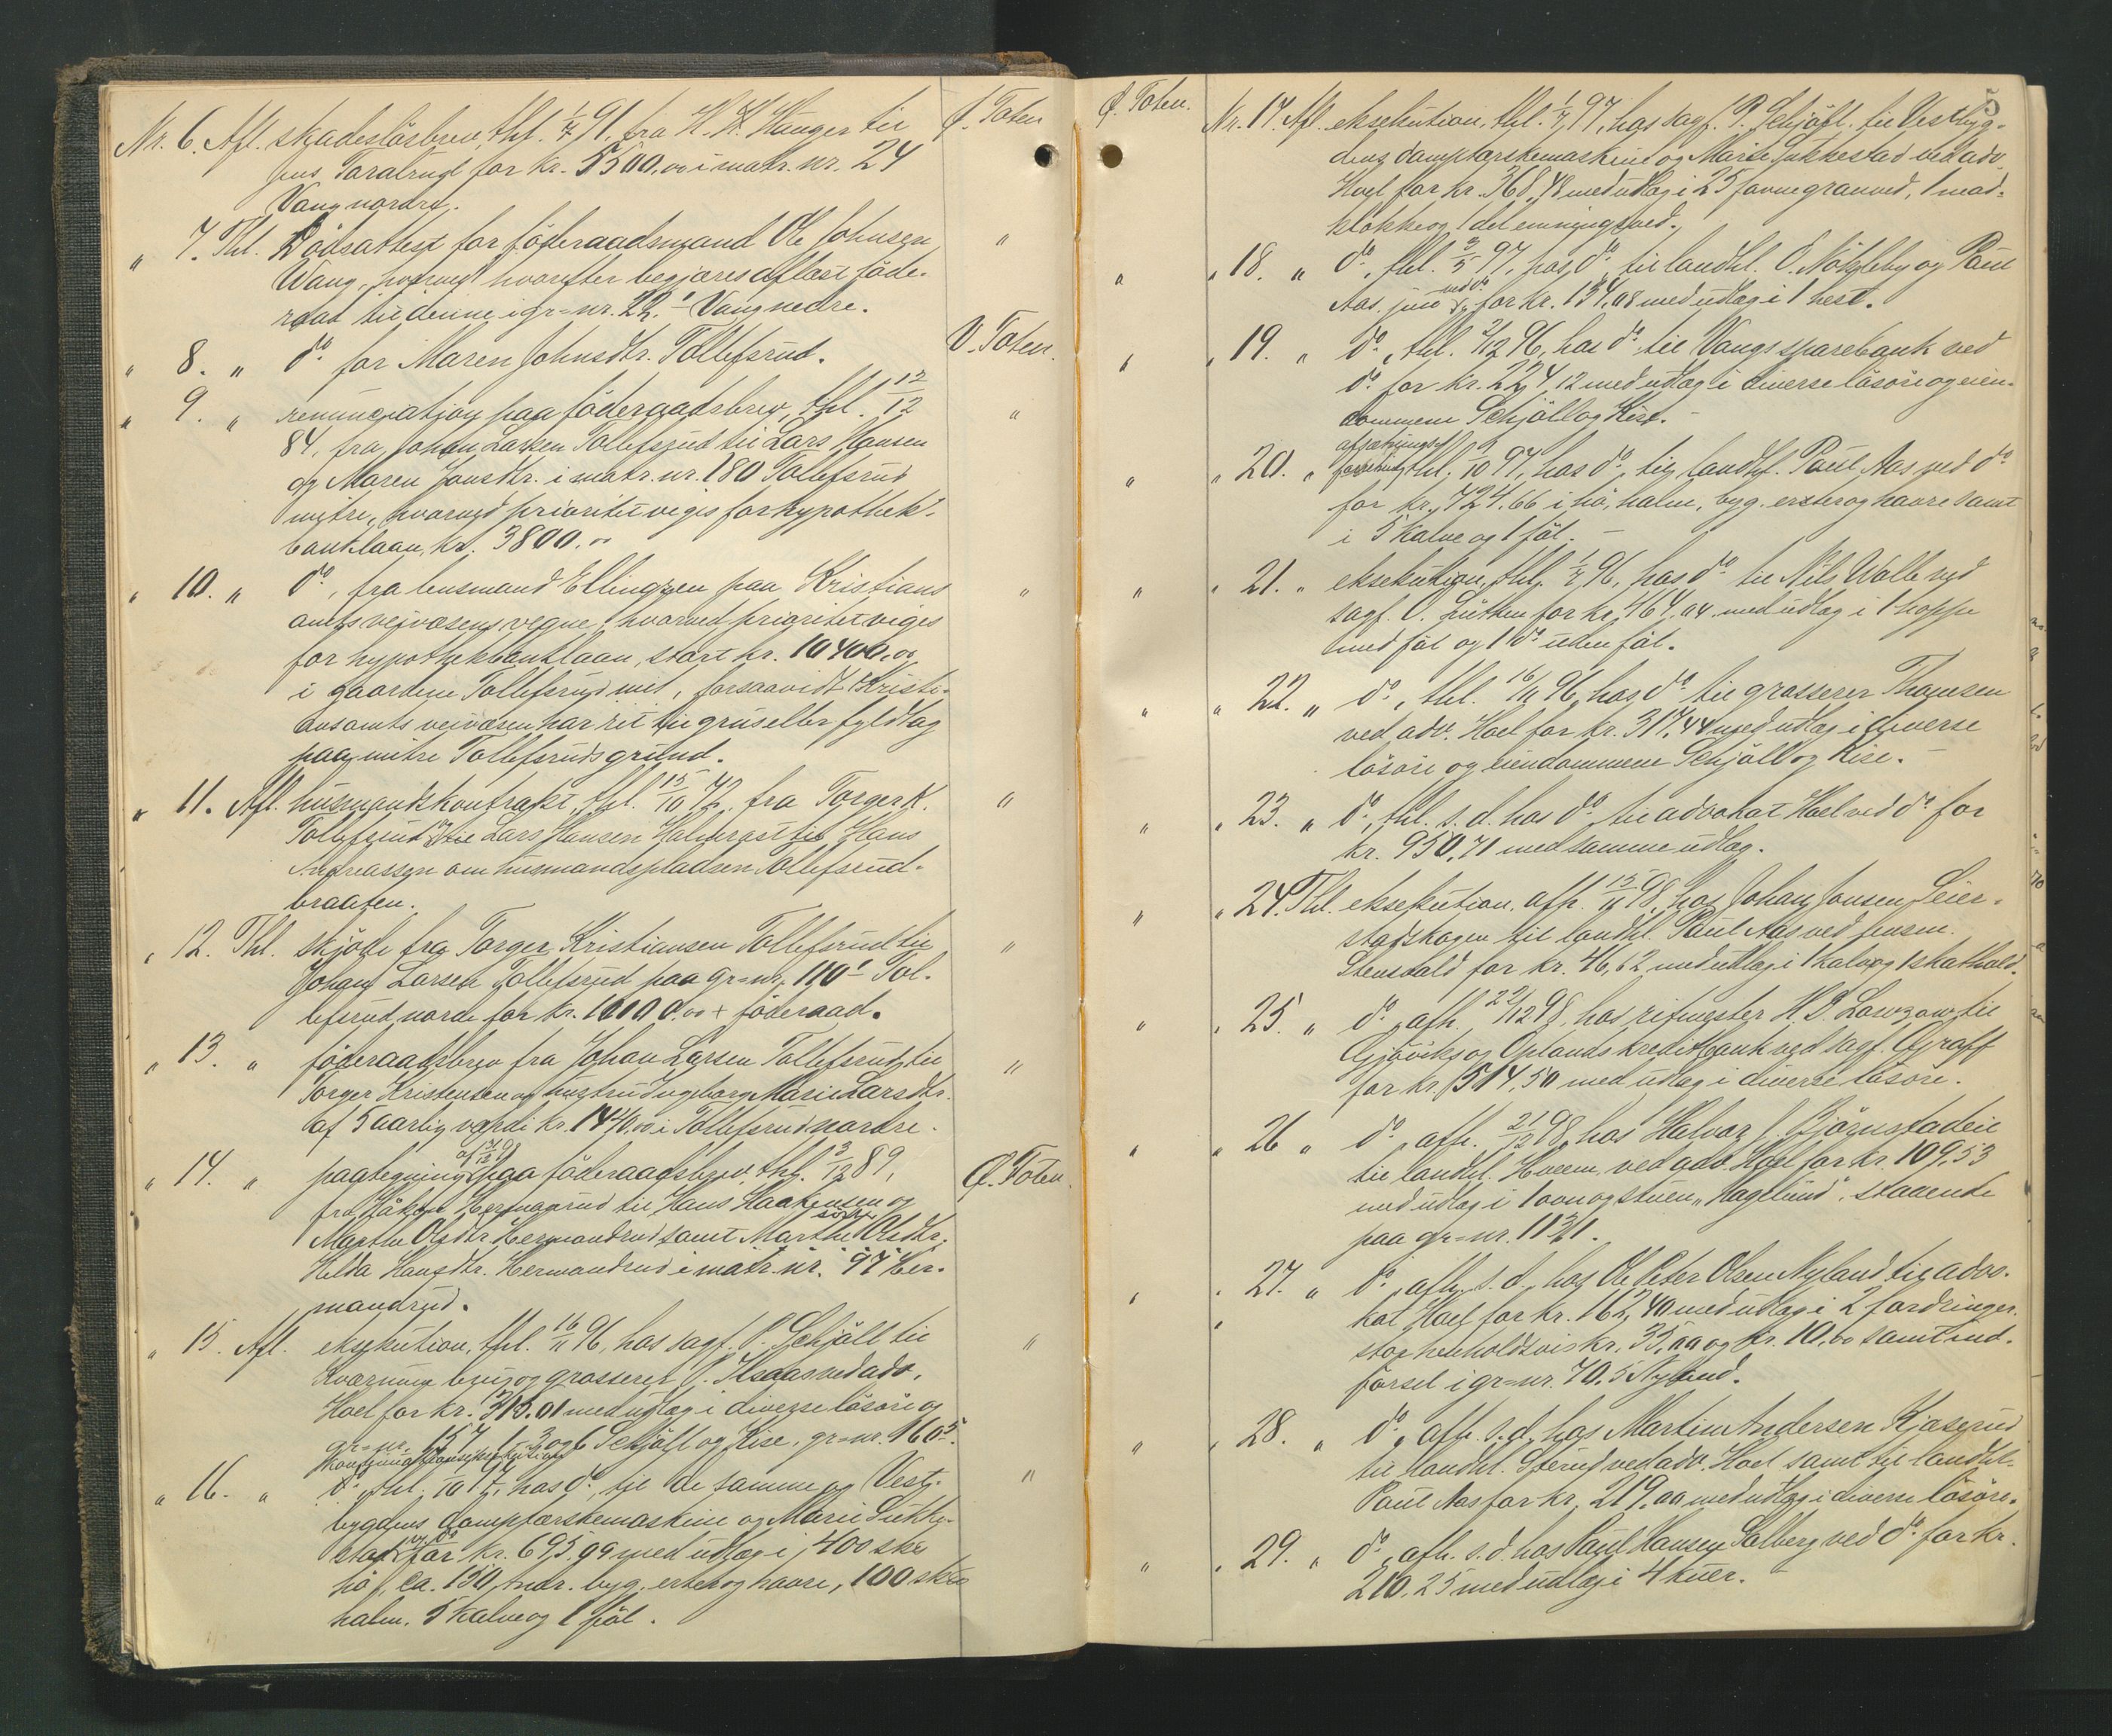 Nr. 6. Afl. skadeslösbrev, thl. 1/7 91, fra H. H. Hauger til Ø. Toten
Jens Taralrud for kr. 5500.00 i matr. nr. 24
Vang nordre.
" 7. Thl. Dödsattest for föderaadsmand Ole Johnsen "
Wang, hvorved hvorefter begjæres aflæst föde-
raad til denne i gr=nr. 22.1 Vang nedre.
" 8. " do for Maren Johnsdtr. Tollefsrud. V. Toten.
" 9. " renunciation paa föderaadsbrev, thl. 12/12 "
84, fra Johan Larsen Tollefsrud til Lars Hansen
og Maren Jonsdtr. i matr. nr. 180 Tollefsrud
mitre, hvorved prioritet viges for hypothek-
banklaan, kr. 3800.00
" 10. " do, fra lensmand Ellingsen paa Kristians "
amts veivæsens vegne, hvorved prioritet viges
for hypothekbanklaan, stort kr. 10400.00
i gaardene Tollefsrud mit, forsaavidt Kristi-
ansamts veivæsen har ret til grus eller fyldtag
paa mitre Tollefsruds grund.
" 11. Afl. husmandskontrakt, thl. 15/10 72, fra Torger K. "
Tollefsrud til Lars Hansen til Hans
Andreassen om husmandspladsen Tollefsrud-
braaten.
" 12. Thl. skjöde fra Torger Kristiansen Tollefsrud til "
Johan Larsen Tollefsrud paa gr=nr. 110.1 Tol-
lefsrud nordre for kr. 16100.00 + föderaad.
" 13. " föderaadsbrev fra Johan Larsen Tollefsrud til "
Torger Kristensen og hustru Ingeborg Marie Larsdtr.
af 5 aarlig værdi kr. 1440.00 i Tollefsrud nordre.
" 14. " paategning paa föderaadsbrev, thl. 3/12 89, Ø. Toten.
fra Håkon Hermanrud til Hans Haakensen og
Marthe Olsdtr. Hermandrud samt Marthe Olsdtr.
Hilda Hansdtr. Hermandrud i matr. nr. 97 Her-
mandrud.
" 15. Afl. eksekution, thl. 16/11 96, hos sagf. P. Schjöll til "
Kværnum brug og grosserer P. Ilsaas ved adv.
Hoel for kr. 315.01 med udlæg i diverse lösöre og
gr=nr. 157, 1-3 og 6 Schjöll og Kise, gr=nr. 160.5.
" 16. " do, thl. 1/10 97, hos do, til de samme og Vest- "
bygdens damptærskemaskine og Marie Lukke-
stad ved do for kr. 695.99 med udlæg i 400 skr
hö, ca. 130 tndr. byg, erter og havre, 100 skr
halm, 5 kalve og 1 föl.

5
Ø. Toten. Nr. 17. Afl. eksekution, thl. 1/7 97, hos sagf. P. Schjöll til Vestbyg-
dens damptærskemaskine og Marie Lukkestad ved adv.
Hoel for kr. 368.48 med udlæg i 25 favne granved, 1 mad-
klokke og 1 del emningsved.
" " 18. " do, thl. 3/5 97, hos do, til landhl. O. Nökleby og Paul
Aas jun. ved do for kr. 134.08 med udlæg i 1 hest.
" " 19. " do, thl. 2/12 96, hos do til Vangs sparebank ved
do for kr. 224.12 med udlæg i diverse lösöre og eien-
dommene Schjöll og Kise.
" " 20. " thl. 6/10 97, hos do, til landhl. Paul Aas ved do
for kr. 724.66 i hö, halm, byg, erter og havre samt
i 5 kalve og 1 föl.
" " 21. " eksekution, thl. 1/7 96, hos do til Nils Walle ved
sagf. O. Lütken for kr. 464.04 med udlæg i 1 hoppe
med föl og 1 do uden föl.
" " 22. " do, thl. 16/11 96, hos do til grosserer Thomsen
ved adv. Hoel for kr. 317.44 med udlæg i diverse
lösöre og eiendommene Schjöll og Kise.
" " 23. " do, thl. s. d. hos do til advokat Hoel ved do for
kr. 950.71 med samme udlæg.
" " 24. Thl. eksekution, afh. 15/11 98, hos Johan Jonsen Seier-
stadskogen til landhl. Paul Aas ved jensm.
Stensvold for kr. 46.62 med udlæg i 1 kalv og 1 skathold.
" " 25. " do, afh. 22/12 98, hos ritmester H. P. Lowzow til
Gjøviks og Oplands kreditbank ved sagf. Graff
for kr. 1514.50 med udlæg i diverse lösöre.
" " 26 " do, afh. 21/12 98, hos Halvor J. Björnstadeie
til landhl. Hveem ved adv. Hoel for kr. 109.53
med udlæg i 1 ovn og stuen „Haglund", staaende
paa gr=nr. 113.1.
" " 27. " do, afh. s. d., hos Ole Peter Olsen Nyland til advo-
kat Hoel for kr. 162.40 med udlæg i 2 fordringer
stor henholdsvis kr. 35.00 og kr. 10.00 samt ind-
försel i gr=nr. 70.5 Nyland.
" " 28. " do, afh. s. d., hos Martin Andersen Kjæserud
til landhl. Sterud ved adv. Hoel samt til landhl.
Paul Aas for kr. 219.00 med udlæg i diverse lösöre.
" " 29. " do, afh. s. d. hos Paul Hansen Solberg ved do for kr.
210.25 med udlæg i 4 kuer.